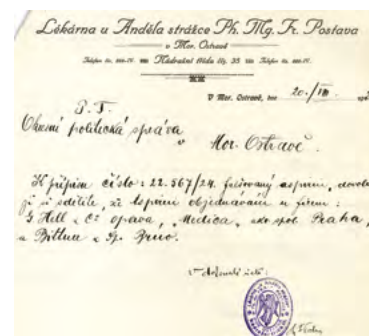 Lékárna u Anděla strážce Ph. Mg. Fr. Postava
v Mor. Ostravě
Nádražní třída čís. 35
V Mor. Ostravě, dne 20./
P. T.
Okresní politická správa
Mor. Ostravě.
K přípisu číslo: 22.567/24. falšovaný aspirin, dovoluji
si sděliti, že Aspirin objednávám u firem:
G. Hell & Co Opava, "Medica", akc. spol. Praha,
a Bittner a Sp. Brno.